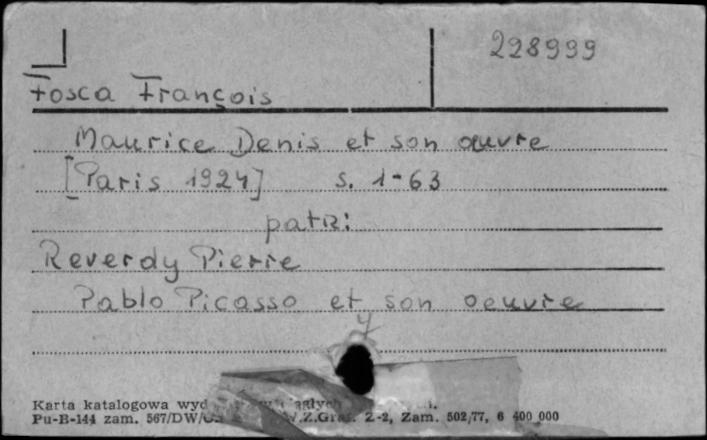 228999
Fosca François
Maurice Denis et son œuvre
[Paris 1924] s. 1-63
patrz:
Reverdy Pierre
Pablo Picasso et son oeuvre
4
Karta katalogowa wyd
Pu-B-144 zam. 567/DW/ Z-2, Zam. 502,77, 6 400 000